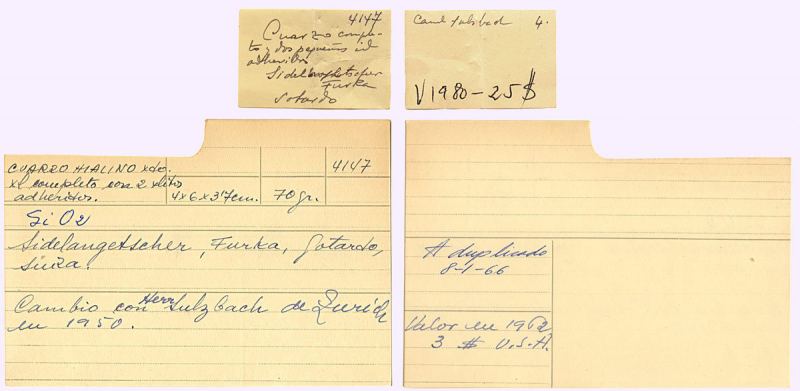 4147
Cuarzo comple-
to y dos pequeños id
adheridos
Sidel
Furka
Gotardo
4.
V 1980 - 25 $
CUARZO HIALINO xdo.
xl completo con 2 xlitos
adheridos.
4x6x3'7 cm.
70 gr.
4147
Si O2
Sidelangetscher, Furka, Gotardo,
Suiza.
Cambio con Herr Sulzbach de Zurich
en 1950.
A duplicado
8-1-66
Valor en 1962
3 $ U.S.A.